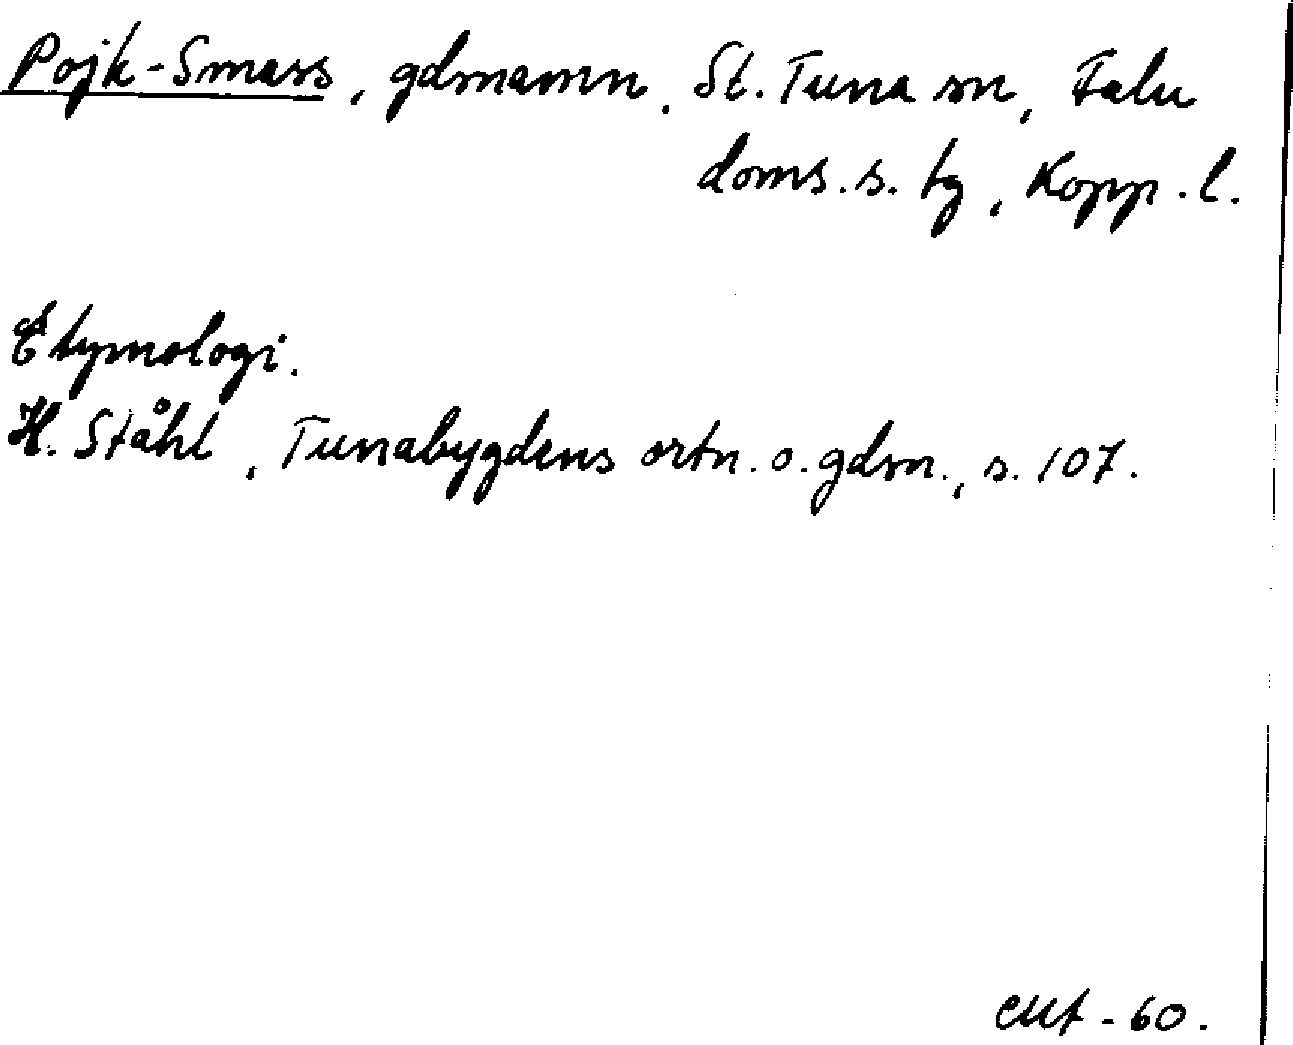 Pojk-Smass, gdsnamn, St. Tuna sn, Falu
doms.s. tg, Kopp. l.
Etymologi.
H. Ståhl, Tunabygdens ortn. o. gdsn., s. 107.
-60.